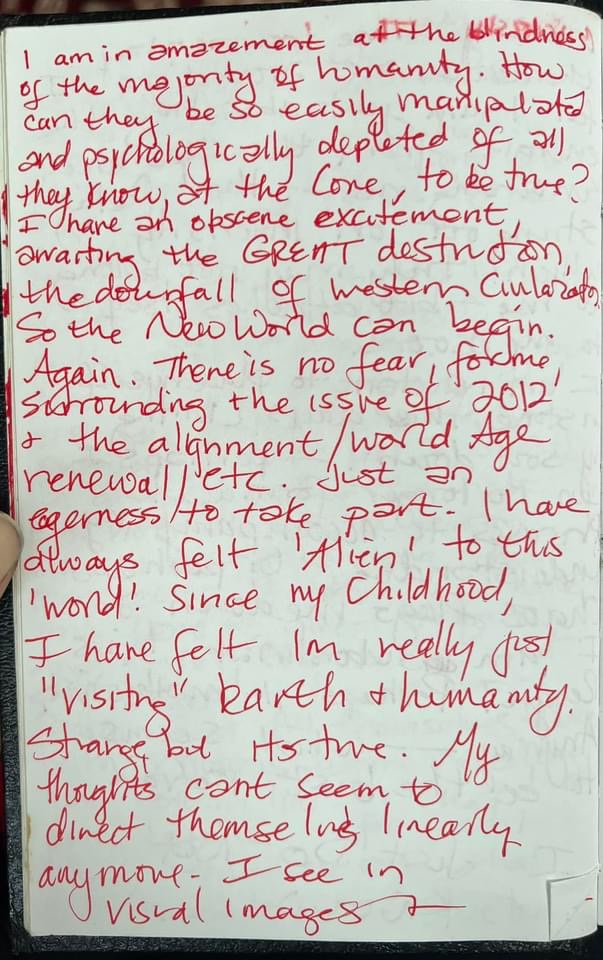 I am in amazement at the blindness
of the majority of humanity. How
can they be so easily manipulated
and psychologically depleted of all
they know, at the Core, to be true?
I have an obscene excitement,
awaiting the GREAT destruction,
the downfall of western Civilization
So the New World can begin.
Again. There is no fear, for me,
surrounding the issue of 2012'
& the alignment/world Age
renewal/etc. Just an
egerness to take part. I have
always felt 'Alien' to this
'world'. Since my Childhood,
I have felt Im really just
"visiting" Earth & humanity.
Strange, but its true. My
thoughts cant seem to
direct themselves linearly
anymore. I see in
visual images &